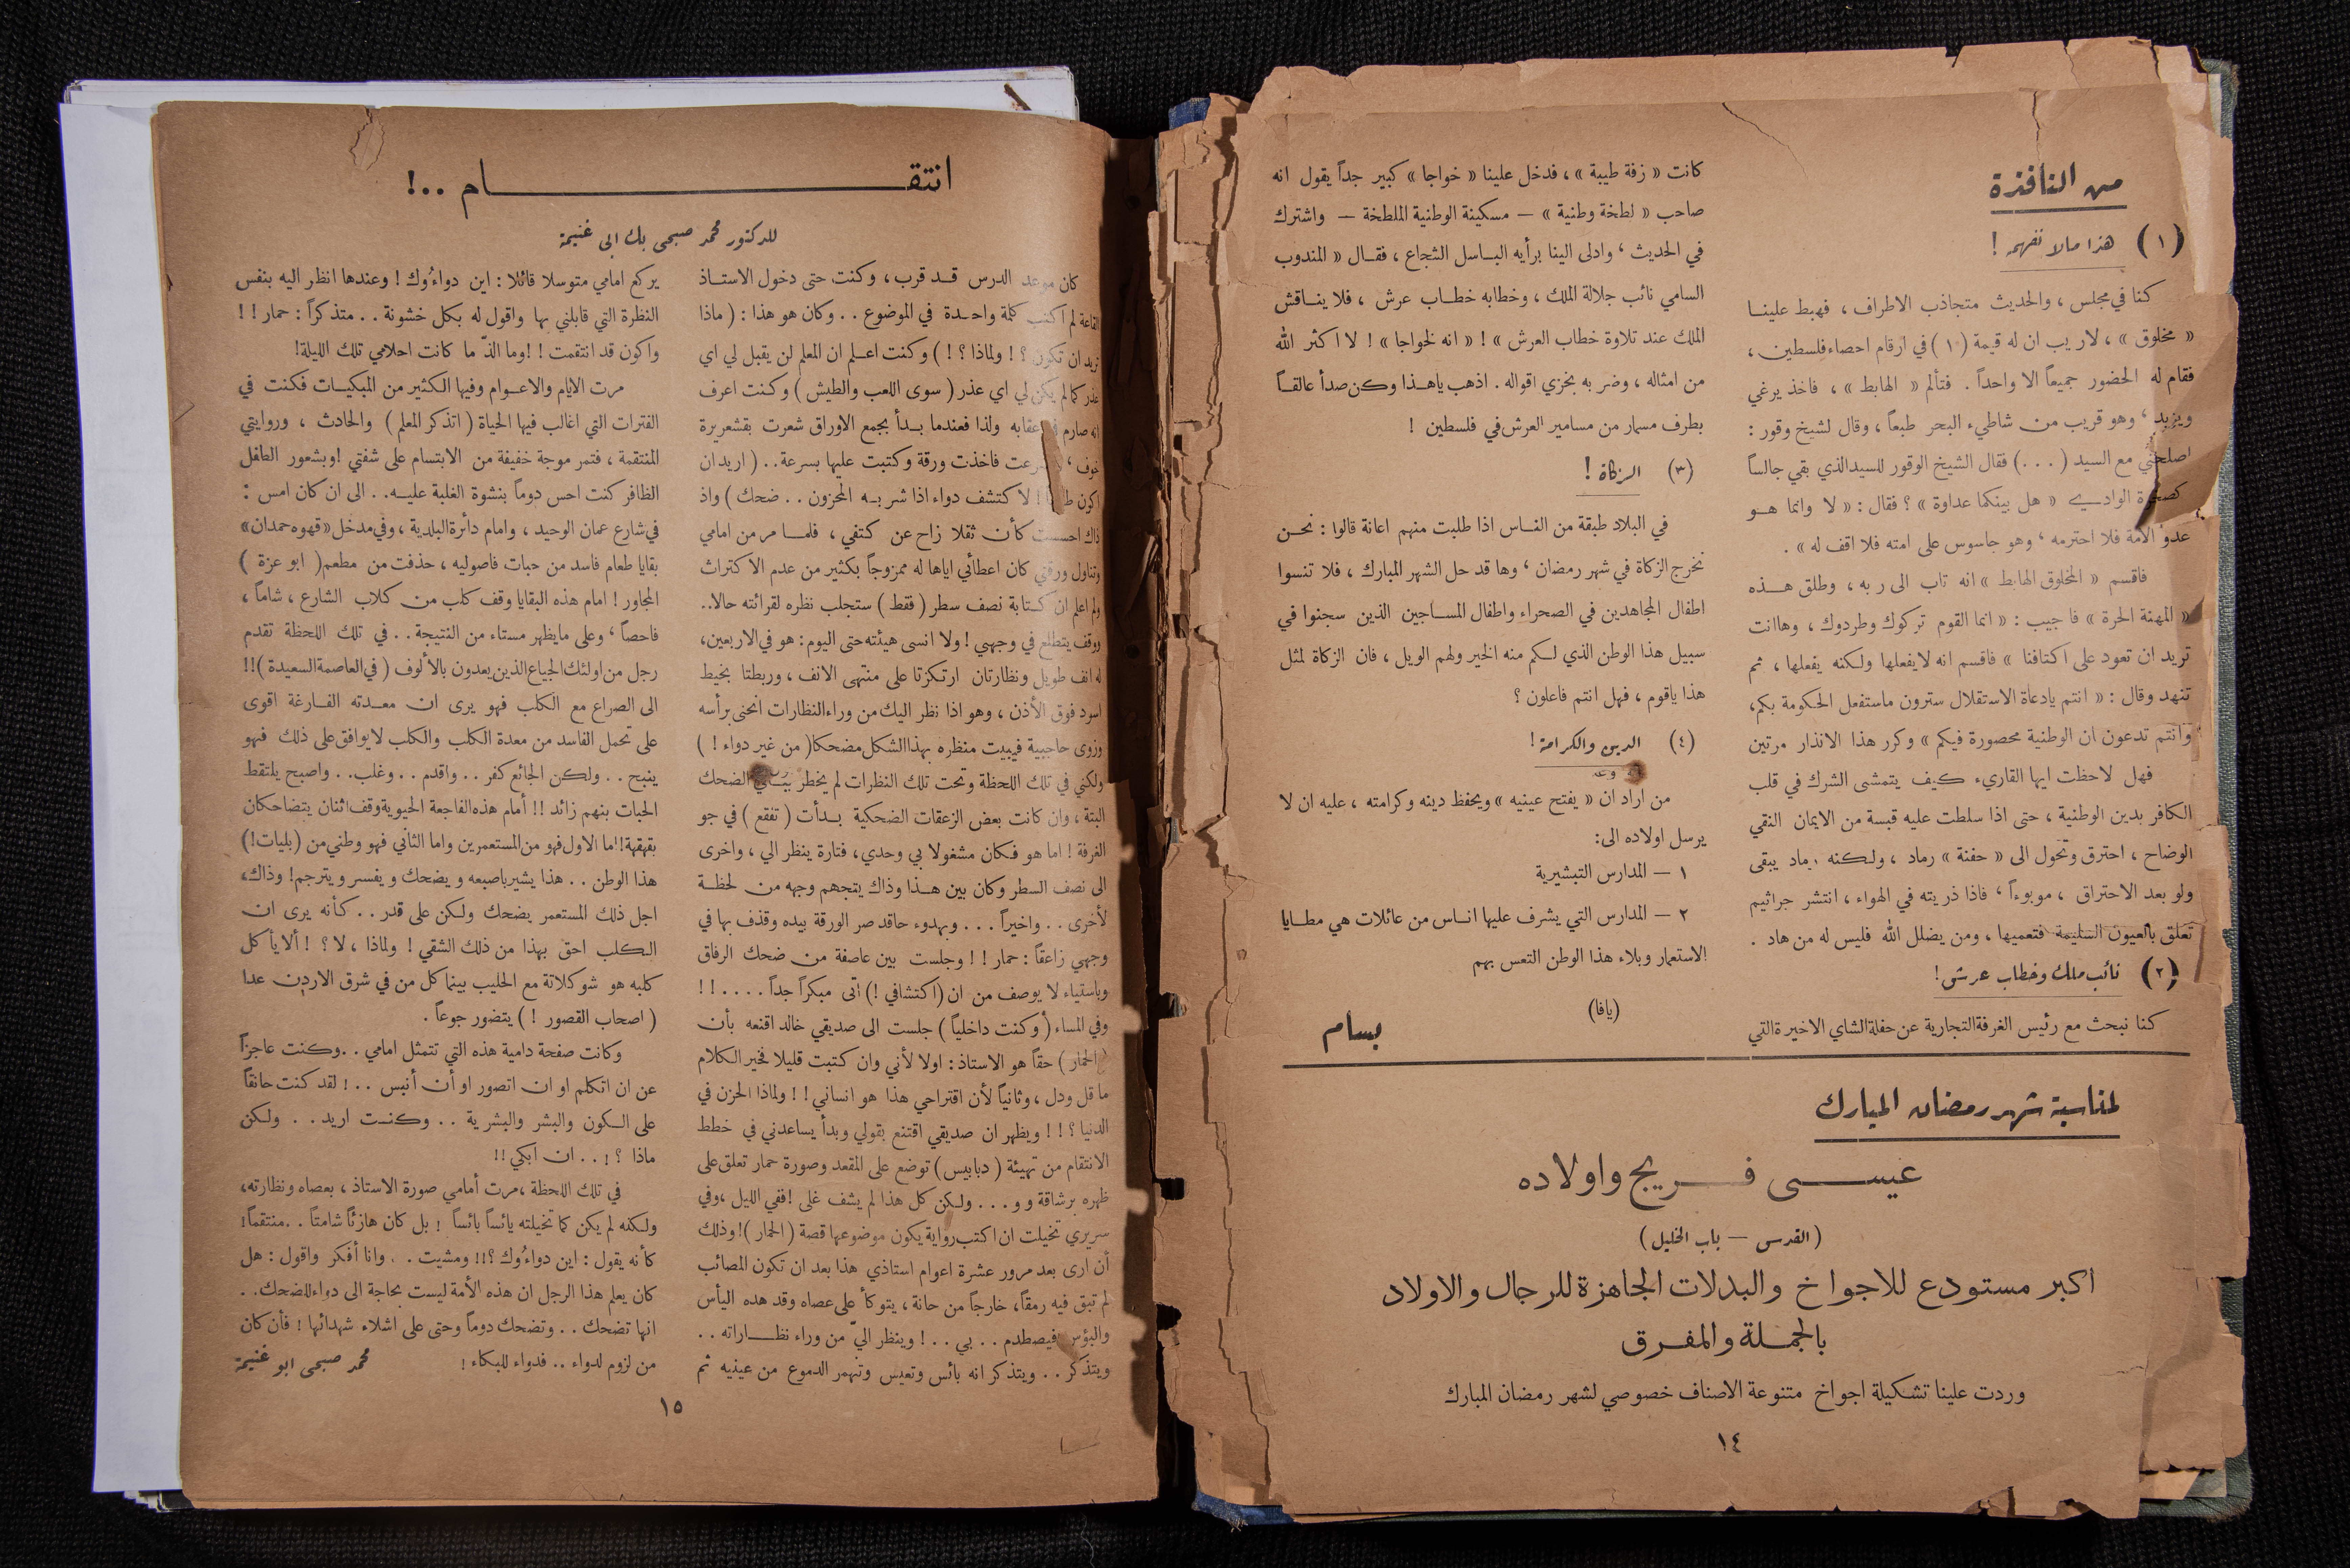 من النافذة
(١) هذا مالا نفهمه !
كنا في مجلس ، والحديث متجاذب الاطراف ، فهبط علينـا
« مخلوق » ، لاريب ان له قيمة (١) في ارقام احصاء فلسطين ،
فقام له الحضور جميعاً الا واحداً . فتألم « الهابط » ، فاخذ يرغي
ويزبد ، وهو قريب من شاطيء البحر طبعاً ، وقال لشيخ وقور :
اصلحني مع السيد (...) فقال الشيخ الوقور للسيد الذي بقي جالساً
كصخرة الوادي « هل بينكما عداوة » ؟ فقال : « لا وانما هـو
عدو الامة فلا احترمه ، وهو جاسوس على امته فلا اقف له » .
فاقسم « المخلوق الهابط » انه تاب الى ربه ، وطلق هـذه
« المهنة الحرة » فاجيب : « انما القوم تركوك وطردوك ، وهاانت
تريد ان تعود على اكتافنا » فاقسم انه لايفعلها ولكنه يفعلها ، ثم
تنهد وقال : « انتم يادعاة الاستقلال سترون ماستفعل الحكومة بكم،
وانتم تدعون ان الوطنية محصورة فيكم » وكرر هذا الانذار مرتين
فهل لاحظت ايها القاريء كيف يتمشى الشرك في قلب
الكافر بدين الوطنية ، حتى اذا سلطت عليه قبسة من الايمان النقي
الوضاح ، احترق وتحول الى « حفنة » رماد ، ولكنه رماد يبقى
ولو بعد الاحتراق ، موبوءاً ، فاذا ذريته في الهواء ، انتشر جراثيم
تعلق بالعيون السليمة فتعميها ، ومن يضلل الله فليس له من هاد .
(٢) نائب ملك وخطاب عرش !
كنا نبحث مع رئيس الغرفة التجارية عن حفلة الشاي الاخيرة التي
كانت « زفة طيبة » ، فدخل علينا « خواجا » كبير جداً يقول انه
صاحب « لطخة وطنية » – مسكينة الوطنية الملطخة – واشترك
في الحديث ، وادلى الينا برأيه البـاسل الشجاع ، فقـال « المندوب
السامي نائب جلالة الملك ، وخطابه خطـاب عرش ، فلا ينـاقش
الملك عند تلاوة خطاب العرش » ! « انه لخواجا » ! لا اكثر الله
من امثاله ، وضر به بخزي اقواله . اذهب ياهـذا وكن صدأ عالقـاً
بطرف مسمار من مسامير العرش في فلسطين !
(٣) الزكاة !
في البلاد طبقة من النـاس اذا طلبت منهم اعانة قالوا : نحـن
نخرج الزكاة في شهر رمضان ، وها قد حل الشهر المبارك ، فلا تنسوا
اطفال المجاهدين في الصحراء واطفال المسـاجين الذين سجنوا في
سبيل هذا الوطن الذي لـكم منه الخير ولهم الويل ، فان الزكاة لمثل
هذا ياقوم ، فهل انتم فاعلون ؟
(٤) الدين والكرامة !
من اراد ان « يفتح عينيه » ويحفظ دينه وكرامته ، عليه ان لا
يرسل اولاده الى:
١ – المدارس التبشيرية
٢ – المدارس التي يشرف عليها انـاس من عائلات هي مطـايا
الاستعمار وبلاء هذا الوطن التعس بهم
(يافا)
بسام
لمناسبة شهر رمضان المبارك
عيســى فــريج واولاده
(القدس – باب الخليل)
اكبر مستودع للاجواخ والبدلات الجاهزة للرجال والاولاد
بالجمـلة والمفـرق
وردت علينا تشكيلة اجواخ متنوعة الاصناف خصوصي لشهر رمضان المبارك
١٤
انتقــــام ..!
للدكتور محمد صبحى بك ابى غنيمة
كان موعد الدرس قـد قرب ، وكنت حتى دخول الاستـاذ
القاعة لم اكتب كلمة واحـدة في الموضوع .. وكان هو هذا : ( ماذا
تريد ان تكون ؟ ! ولماذا ؟ ! ) وكنت اعـلم ان المعلم لن يقبل لي اي
عذر كما لم يكن لي اي عذر ( سوى اللعب والطيش ) وكنت اعرف
انه صارم في عقابه ولذا فعندما بـدأ بجمع الاوراق شعرت بقشعريرة
خوف ، فاخذت ورقة وكتبت عليها بسرعة .. ( اريد ان
اكون ! لاكتشف دواء اذا شربـه المحزون .. ضحك ) واذ
ذاك احسست كأن ثقلا زاح عن كتفي ، فلمـا مر من امامي
وتناول ورقتي كان اعطائي اياها له ممزوجاً بكثير من عدم الاكتراث
ولم اعلم ان كـتابة نصف سطر ( فقط ) ستجلب نظره لقرائته حالا..
ووقف يتطلع في وجهي ! ولا انسى هيئته حتى اليوم : هو في الاربعين،
له انف طويل ونظارتان ارتكزتا على منتهى الانف ، وربطتا بخيط
اسود فوق الأذن ، وهو اذا نظر اليك من وراء النظارات انحنى برأسه
وزوى حاجبية فيبيت منظره بهذا الشكل مضحكا ( من غير دواء ! )
ولكني في تلك اللحظة وتحت تلك النظرات لم يخطر ببالي الضحك
البتة ، وان كانت بعض الزعقات الضحكية بـدأت ( تفقع ) في جو
الغرفة ! اما هو فكان مشغولا بي وحدي، فتارة ينظر الي ، واخرى
الى نصف السطر وكان بين هـذا وذاك يتجهم وجهه من لحظـة
لأخرى .. واخيراً ... وبهدوء حاقد صر الورقة بيده وقذف بها في
وجهي زاعقاً : حمار ! ! وجلست بين عاصفة من ضحك الرفاق
وباستياء لا يوصف من ان ( اكتشافي ! ) أتى مبكراً جداً .... ! !
وفي المساء ( وكنت داخلياً ) جلست الى صديقي خالد اقنعه بأن
( الحمار ) حقاً هو الاستاذ : اولا لأني وان كتبت قليلا فخير الكلام
ما قل ودل ، وثانياً لأن اقتراحي هذا هو انساني ! ! ولماذا الحزن في
الدنيا ؟ ! ! ويظهر ان صديقي اقتنع بقولي وبدأ يساعدني في خطط
الانتقام من تهيئة ( دبابيس ) توضع على المقعد وصورة حمار تعلق على
ظهره برشاقة و و ... ولـكن كل هذا لم يشف غلي ! ففي الليل ، وفي
سريري تخيلت ان اكتب رواية يكون موضوعها قصة ( الحمار ) ! وذلك
أن ارى بعد مرور عشرة اعوام استاذي هذا بعد ان تكون المصائب
لم تبق فيه رمقاً، خارجاً من حانة ، يتوكأ على عصاه وقد هده اليأس
والبؤس فيصطدم .. بي .. ! وينظر اليّ من وراء نظـاراته ..
ويتذكر .. ويتذكر انه بائس وتعيس وتنهمر الدموع من عينيه ثم
يركع امامي متوسلا قائلا : اين دواءُوك ! وعندها انظر اليه بنفس
النظرة التي قابلني بها واقول له بكل خشونة .. متذكراً : حمار ! !
واكون قد انتقمت ! ! وما الذّ ما كانت احلامي تلك الليلة !
مرت الايام والاعـوام وفيها الكثير من المبكيـات فكنت في
الفترات التي اغالب فيها الحياة ( اتذكر المعلم ) والحادث ، وروايتي
المنتقمة ، فتمر موجة خفيفة من الابتسام على شفتي ! وبشعور الطفل
الظافر كنت احس دوماً بنشوة الغلبة عليـه .. الى ان كان امس :
في شارع عمان الوحيد ، وامام دائرة البلدية ، وفي مدخل « قهوه حمدان »
بقايا طعام فاسد من حبات فاصوليه ، حذفت من مطعم ( ابو عزة )
المجاور ! امام هذه البقايا وقف كلب من كلاب الشارع ، شاماً ،
فاحصاً ، وعلى مايظهر مستاء من النتيجة .. في تلك اللحظة تقدم
رجل من اولئك الجياع الذين يعدون بالألوف ( في العاصمة السعيدة )!!
الى الصراع مع الكلب فهو يرى ان معـدته الفـارغة اقوى
على تحمل الفاسد من معدة الكلب والكلب لايوافق على ذلك فهو
ينبح .. ولكن الجائع كفر .. واقدم .. وغلب.. واصبح يلتقط
الحبات بنهم زائد !! أمام هذه الفاجعة الحيوية وقف اثنان يتضاحكان
بقهقهة! اما الاول فهو من المستعمرين واما الثاني فهو وطني من ( بليات!)
هذا الوطن .. هذا يشير باصبعه ويضحك ويفسر ويترجم ! وذاك،
اجل ذلك المستعمر يضحك ولكن على قدر .. كأنه يرى ان
الكلب احق بهذا من ذلك الشقي ! ولماذا ، لا ؟ ! ألا يأكل
كلبه هو شوكلاتة مع الحليب بينما كل من في شرق الاردن عدا
( اصحاب القصور ! ) يتضور جوعاً .
وكانت صفحة دامية هذه التي تتمثل امامي .. وكنت عاجزاً
عن ان اتكلم او ان اتصور او أن أنبس .. ! لقد كنت حانقاً
على الـكون والبشر والبشرية .. وكنت اريد .. ولكن
ماذا ؟ ! .. ان ابكي !!
في تلك اللحظة ، مرت أمامي صورة الاستاذ ، بعصاه ونظارته،
ولكنه لم يكن كما تخيلته يائساً بائساً ! بل كان هازئاً شامتاً .. منتقماً !
كأنه يقول : اين دواءُوك ؟!! ومشيت .. وانا أفكر واقول : هل
كان يعلم هذا الرجل ان هذه الأمة ليست بحاجة الى دواء للضحك ..
انها تضحك .. وتضحك دوماً وحتى على اشلاء شهدائها ! فأن كان
من لزوم لدواء .. فدواء للبكاء !
محمد صبحى ابو غنيمة
١٥